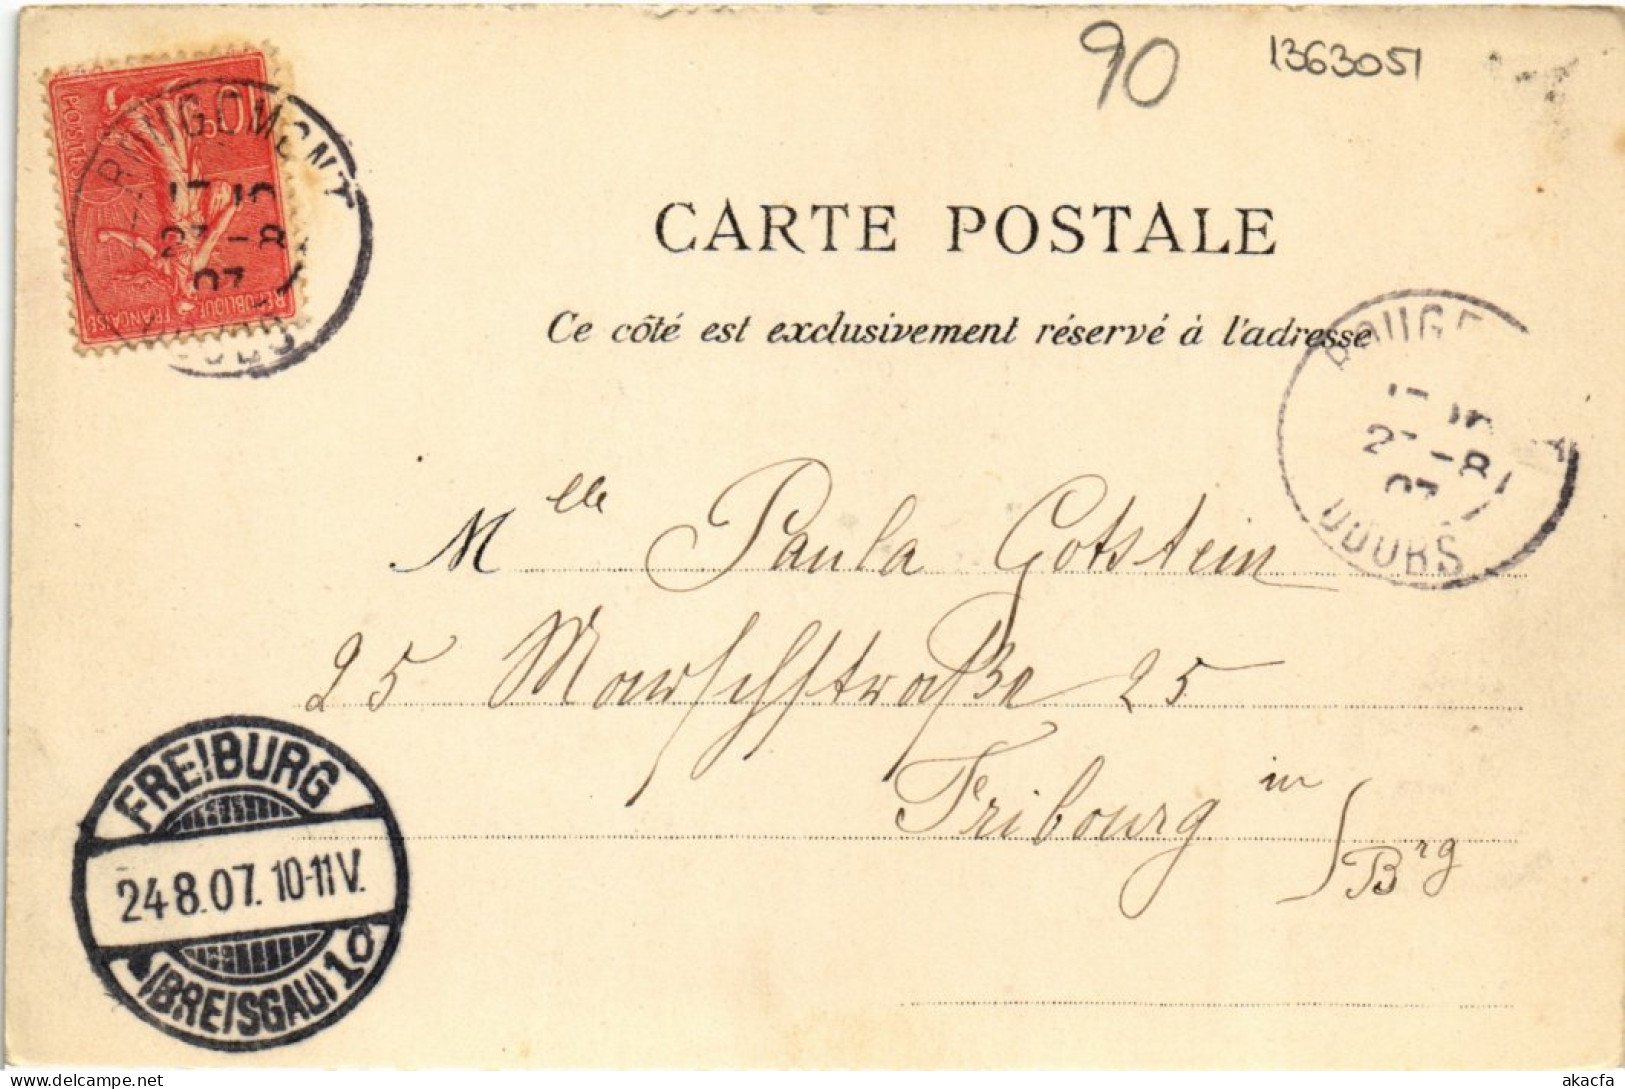 90
1363051
POSTES
10
RÉPUBLIQUE FRANÇAISE
ROUGEMONT
23 -8
07
DOUBS
CARTE POSTALE
Ce côté est exclusivement réservé à l'adresse
ROUGE
23 -8
07
DOUBS
Mlle Paula Gotstein
25 Marschstraße 25
Fribourg in
Brg
FREIBURG
24.8.07. 10-11 V.
(BREISGAU) 10
akacfa